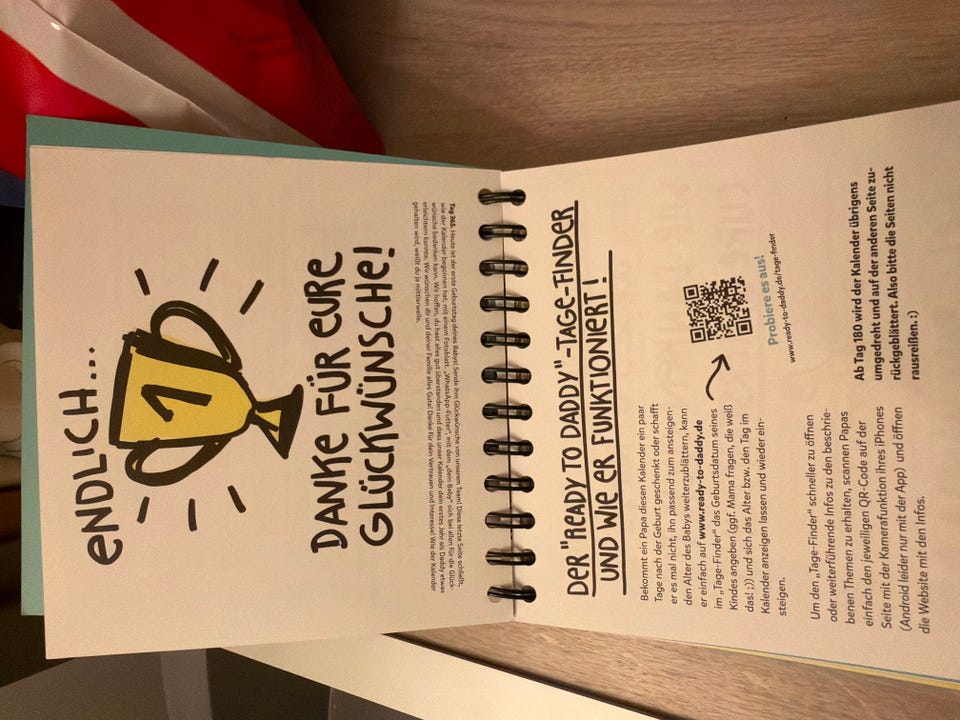 ENDLICH...
1
DANKE FÜR EURE
GLÜCKWÜNSCHE!
Tag 365. Heute ist der erste Geburtstag deines Babys! Sende ihm Glückwünsche von unserem Team! Diese letzte Seite schließt,
wie der Kalender begonnen hat, mit einem Fotoblatt. „WhatsApp-Futter“, mit dem „dein Baby“ sich bei allen für die Glück-
wünsche bedanken kann. Wir hoffen, du hast alles gut überstanden und dass unser Kalender dein erstes Jahr als Daddy etwas
erleichtern konnte. Wir wünschen dir und deiner Familie alles Gute! Danke für dein Vertrauen und Interesse! Wie der Kalender
gehalten wird, weißt du ja mittlerweile.
DER "READY TO DADDY"-TAGE-FINDER
UND WIE ER FUNKTIONIERT!
Bekommt ein Papa diesen Kalender ein paar
Tage nach der Geburt geschenkt oder schafft
er es mal nicht, ihn passend zum ansteigen-
den Alter des Babys weiterzublättern, kann
er einfach auf www.ready-to-daddy.de
im „Tage-Finder“ das Geburtsdatum seines
Kindes angeben (ggf. Mama fragen, die weiß
das! ;)) und sich das Alter bzw. den Tag im
Kalender anzeigen lassen und wieder ein-
steigen.
Probiere es aus!
www.ready-to-daddy.de/tage-finder
Um den „Tage-Finder“ schneller zu öffnen
oder weiterführende Infos zu den beschrie-
benen Themen zu erhalten, scannen Papas
einfach den jeweiligen QR-Code auf der
Seite mit der Kamerafunktion ihres iPhones
(Android leider nur mit der App) und öffnen
die Website mit den Infos.
Ab Tag 180 wird der Kalender übrigens
umgedreht und auf der anderen Seite zu-
rückgeblättert. Also bitte die Seiten nicht
rausreißen. :)